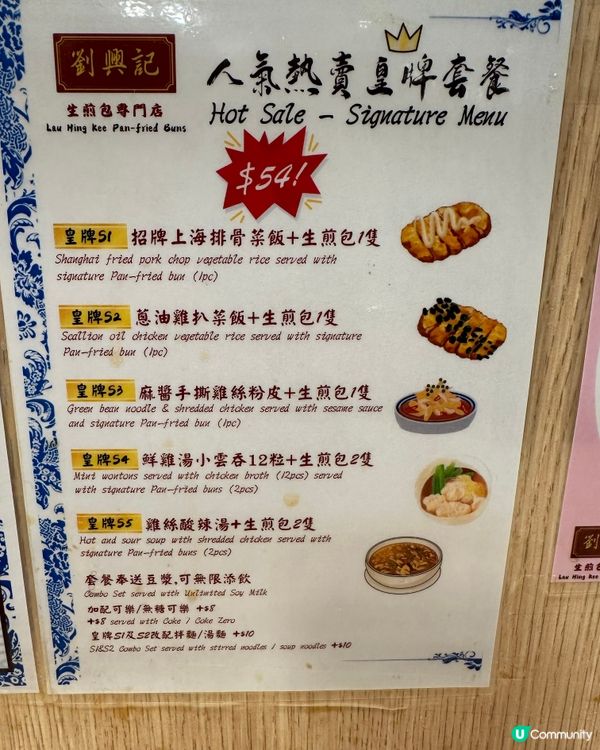 劉興記
生煎包專門店
Lau Hing Kee Pan-fried Buns
人氣熱賣皇牌套餐
Hot Sale - Signature Menu
$54!
皇牌S1 招牌上海排骨菜飯+生煎包1隻
Shanghai fried pork chop vegetable rice served with
signature Pan-fried bun (1pc)
皇牌S2 蔥油雞扒菜飯+生煎包1隻
Scallion oil chicken vegetable rice served with signature
Pan-fried bun (1pc)
皇牌S3 麻醬手撕雞絲粉皮+生煎包1隻
Green bean noodle & shredded chicken served with sesame sauce
and signature Pan-fried bun (1pc)
皇牌S4 鮮雞湯小雲吞12粒+生煎包2隻
Mini wontons served with chicken broth (12pcs) served
with signature Pan-fried buns (2pcs)
皇牌S5 雞絲酸辣湯+生煎包2隻
Hot and sour soup with shredded chicken served with
signature Pan-fried buns (2pcs)
套餐奉送豆漿,可無限添飲
Combo Set served with Unlimited Soy Milk
加配可樂/無糖可樂 +$8
+$8 served with Coke / Coke Zero
皇牌S1及S2改配拌麵/湯麵 +$10
S1&S2 Combo Set served with stirred noodles / soup noodles +$10
劉
生煎
Lau Hing Kee
U Community